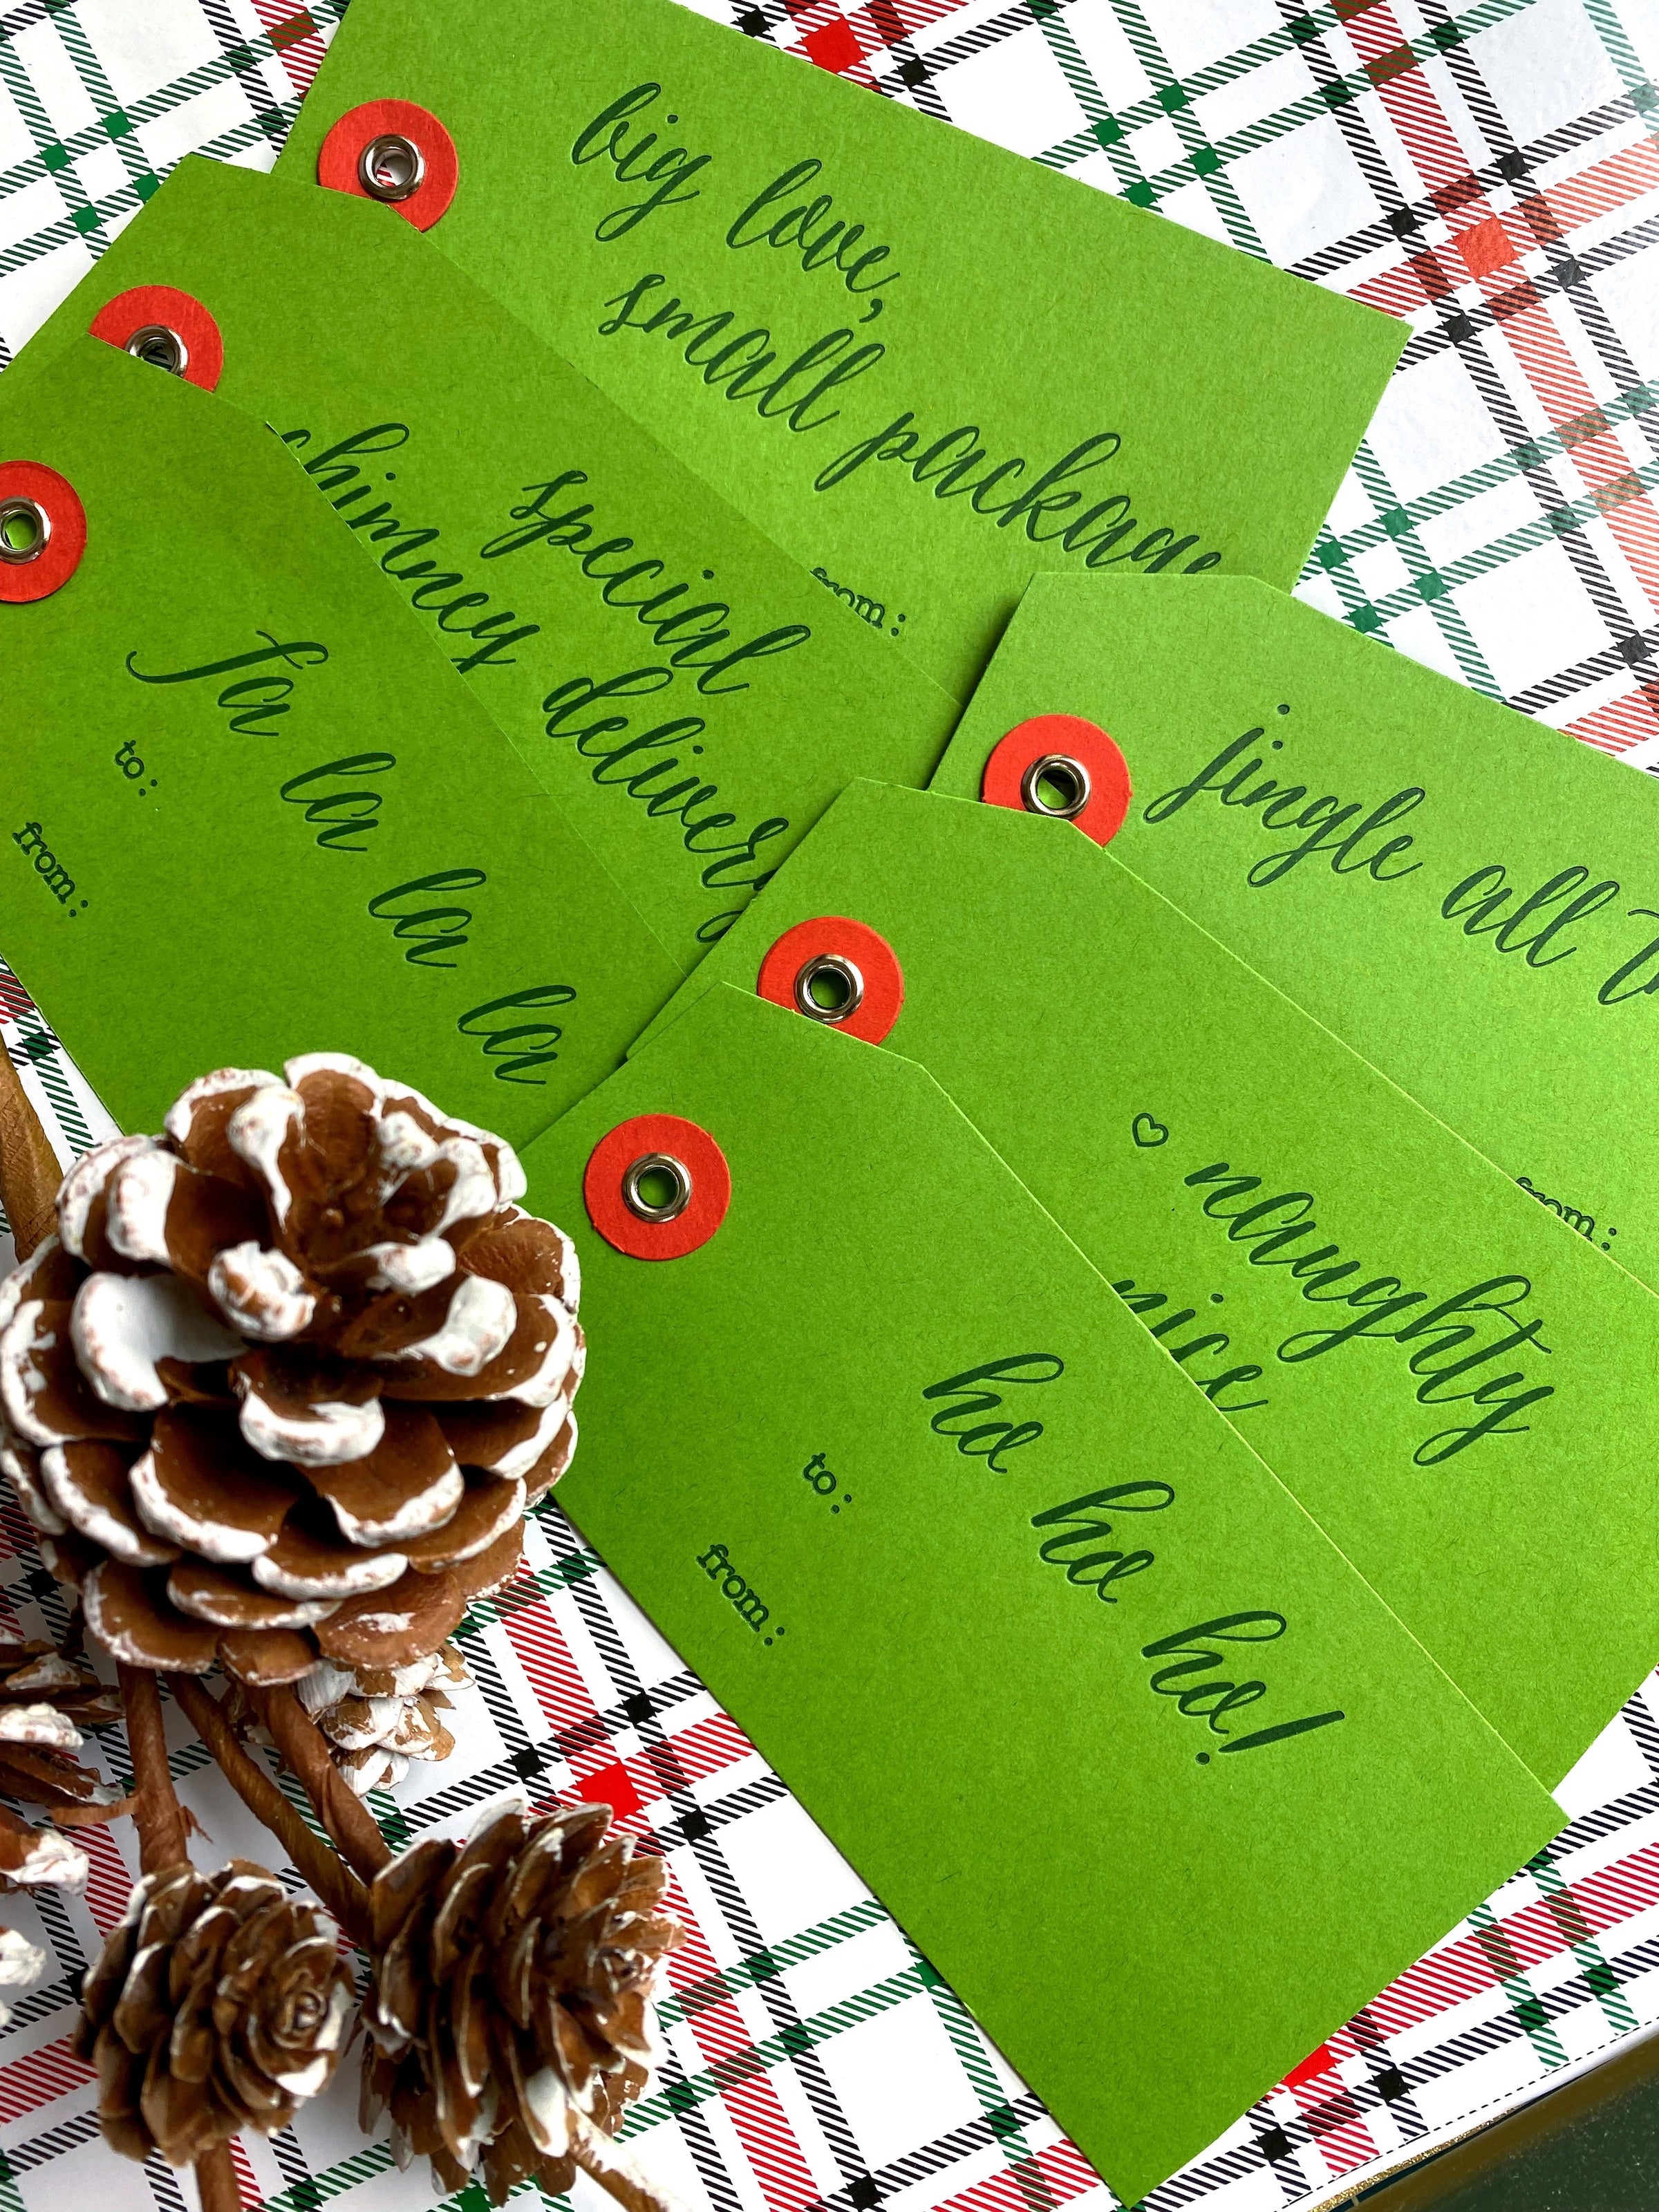 big love,
small package
from:
special
chimney delivery
fa la la la
to:
from:
jingle all
from:
♡ naughty
nice
ho ho ho!
to:
from: